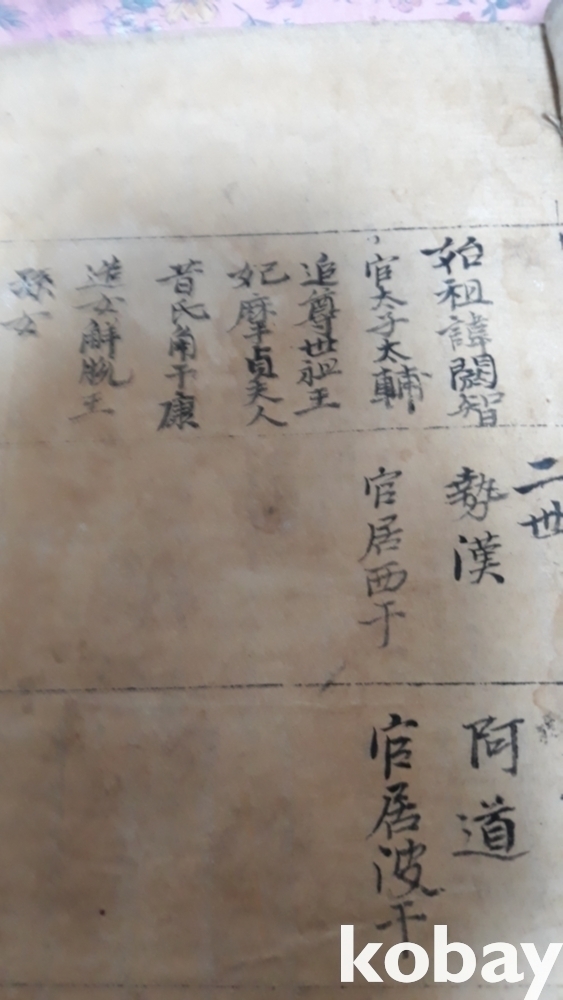 始祖諱閼智
官大子太輔
追尊世祖王
妃摩貞夫人
昔氏角干康
造女解脫王
孫女
二世
勢漢
官居西干
阿道
官居波干
kobay